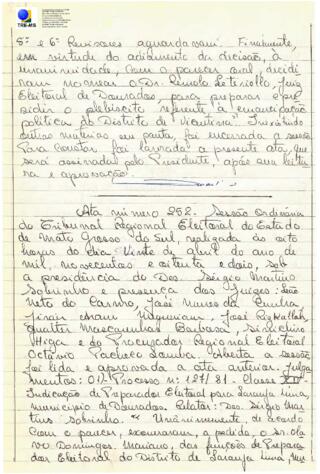 TRE-MS
5º e 6º Revisores aguardavam. Finalmente,
em virtude do adiamento da decisão, à
unanimidade, com o parecer oral decidi
ram nomear o Dr. Rêmolo Letteriello, Juiz
Eleitoral de Dourados, para preparar e pre
sidir o plebiscito referente à emancipação
política do Distrito de Vicentina. Inexistindo
outras matérias em pauta, foi encerrada a sessão.
Para constar, foi lavrada a presente ata, que
será assinada pelo Presidente, após sua leitu
ra e aprovação.
Ata número 252. Sessão Ordinária
do Tribunal Regional Eleitoral do Estado
de Mato Grosso do Sul, realizada às oito
horas do dia vinte de abril do ano de
mil, novecentos e oitenta e dois, sob
a presidência do Des. Sérgio Martins
Sobrinho e presença dos Juízes: Leão
Neto do Carmo, José Nunes da Cunha,
José Rizkallah,
Gualter Mascarenhas Barbosa,
Higa e do Procurador Regional Eleitoral
Octávio Pacheco Lomba. Aberta a sessão,
foi lida e aprovada a ata anterior. Julga
mentos: 01. Processo nº 127/81. Classe XII
Indicação de Preparador Eleitoral para Laranja Lima,
município de Dourados. Relator: Des. Sérgio Mar
tins Sobrinho. "Unanimemente, de acordo
com o parecer, exoneraram, a pedido, o sr. Ola
vo Domingos Mariano, das funções de Prepara
dor Eleitoral do Distrito de Laranja Lima,